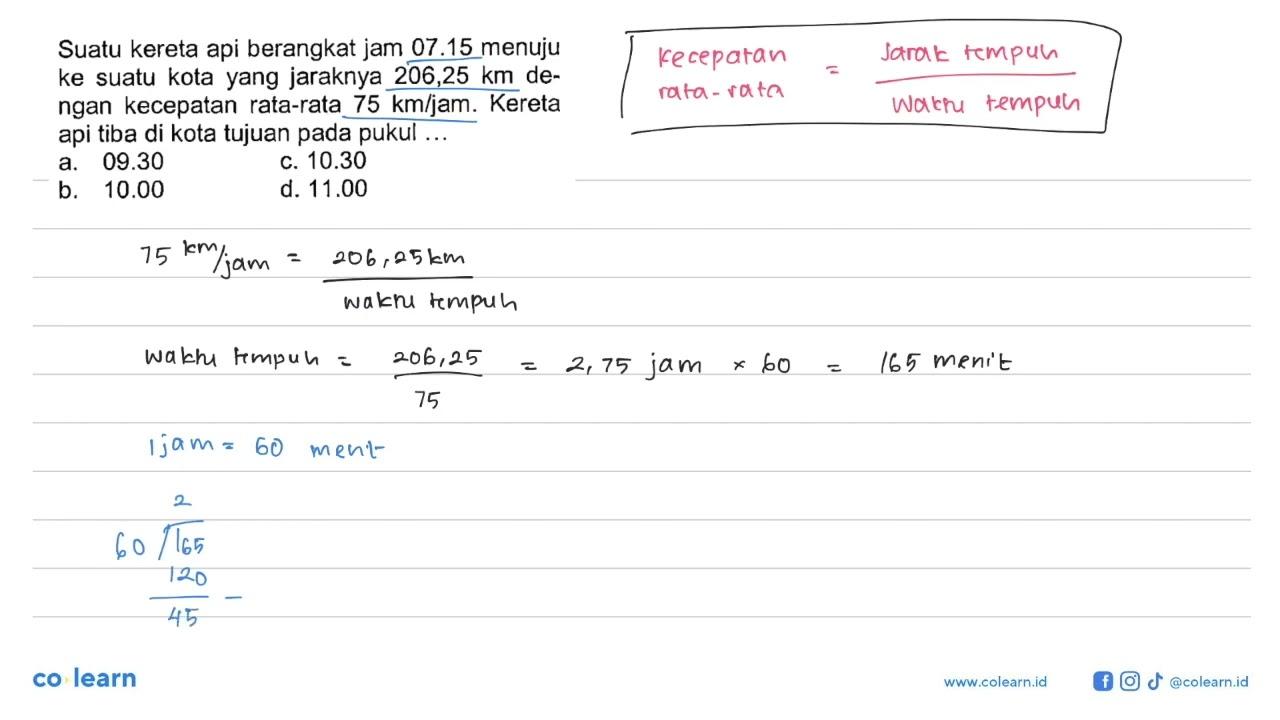 Suatu kereta api berangkat jam 07.15 menuju
ke suatu kota yang jaraknya 206,25 km de-
ngan kecepatan rata-rata 75 km/jam. Kereta
api tiba di kota tujuan pada pukul ...
a. 09.30 c. 10.30
b. 10.00 d. 11.00
Kecepatan rata-rata = Jarak tempuh / Waktu tempuh
75 km/jam = 206,25 km / waktu tempuh
waktu tempuh = 206,25 / 75 = 2,75 jam × 60 = 165 menit
1 jam = 60 menit
2
60 165
120
45 -
co learn
www.colearn.id @colearn.id